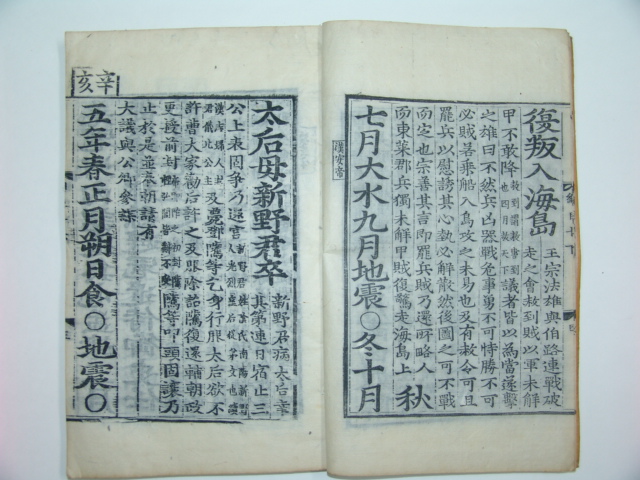 復叛入海島 王宗法雄與伯路連戰破
走之會赦到賊以軍未解
甲不敢降 赦到謂赦書到也四月赦天下 議者皆以為當遂擊
之雄曰不然兵凶器戰危事勇不可恃勝不可
必賊若乘船入島攻之未易也及有赦令可且
罷兵以慰誘其心埶必解散然後圖之可不戰
而定也宗善其言即罷兵賊乃還所略人
而東萊郡兵獨未解甲賊復驚走海島上 秋
七月大水九月地震○冬十月
太后毋新野君卒 新野君病太后幸
其第連日宿止三
公上表固爭乃還宮
及薨鄧騭等乞身行服太后欲不
許曹大家勸后許之及服除詔騭復還輔朝政
更授前封 騭等叩頭固讓乃
止於是並奉朝請有
大議與公卿參謀
辛亥
五年春正月朔日食○地震○